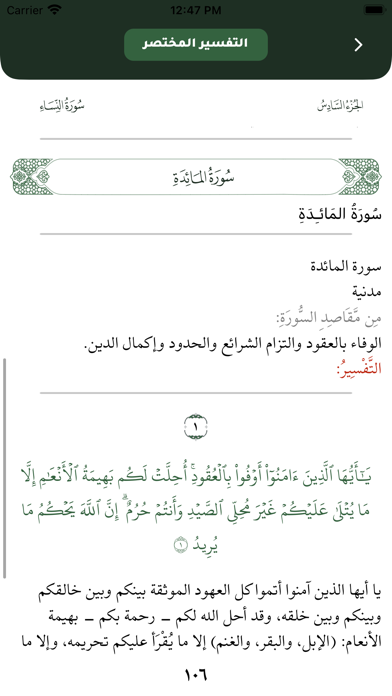 Carrier 12:47 PM
التفسير المختصر
الجُزْءُ السَّادِسُ سُورَةُ النِّسَاءِ
سُورَةُ المَائِدَةِ
سُورَةُ المَائِدَةِ
سورة المائدة
مدنية
مِن مَّقَاصِدِ السُّورَةِ:
الوفاء بالعقود والتزام الشرائع والحدود وإكمال الدين.
التَّفْسِيرُ:
١
يَـٰٓأَيُّهَا ٱلَّذِينَ ءَامَنُوٓاْ أَوۡفُواْ بِٱلۡعُقُودِۚ أُحِلَّتۡ لَكُم بَهِيمَةُ ٱلۡأَنۡعَـٰمِ إِلَّا
مَا يُتۡلَىٰ عَلَيۡكُمۡ غَيۡرَ مُحِلِّي ٱلصَّيۡدِ وَأَنتُمۡ حُرُمٌۗ إِنَّ ٱللَّهَ يَحۡكُمُ مَا
يُرِيدُ ١
يا أيها الذين آمنوا أتموا كل العهود الموثقة بينكم وبين خالقكم
وبينكم وبين خلقه، وقد أحل الله لكم – رحمة بكم – بهيمة
الأنعام: (الإبل، والبقر، والغنم) إلا ما يُقْرَأ عليكم تحريمه، وإلا ما
١٠٦